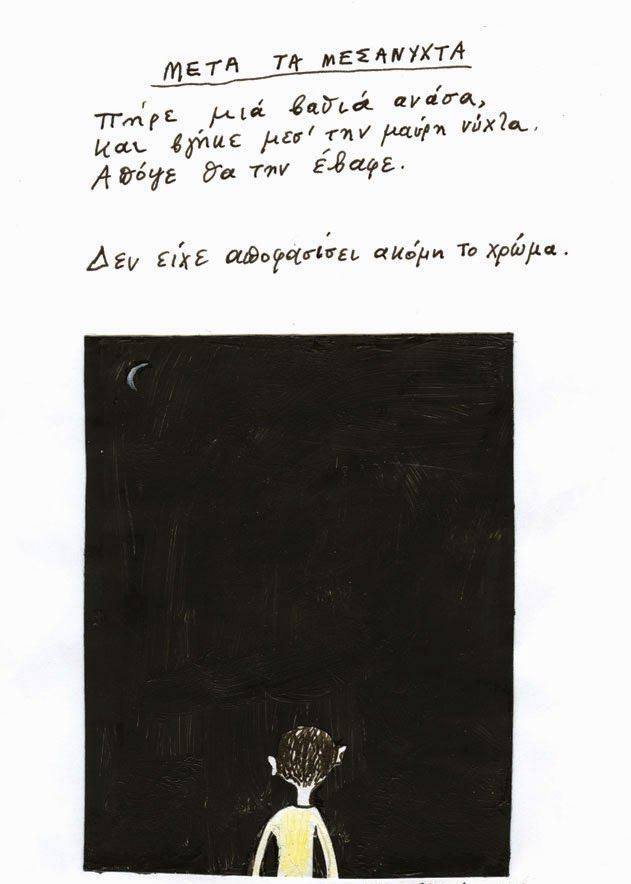 ΜΕΤΑ ΤΑ ΜΕΣΑΝΥΧΤΑ
Πήρε μιά βαθιά ανάσα,
και βγήκε μεσ' την μαύρη νύχτα.
Απόψε θα την έβαφε.
Δεν είχε αποφασίσει ακόμη το χρώμα.